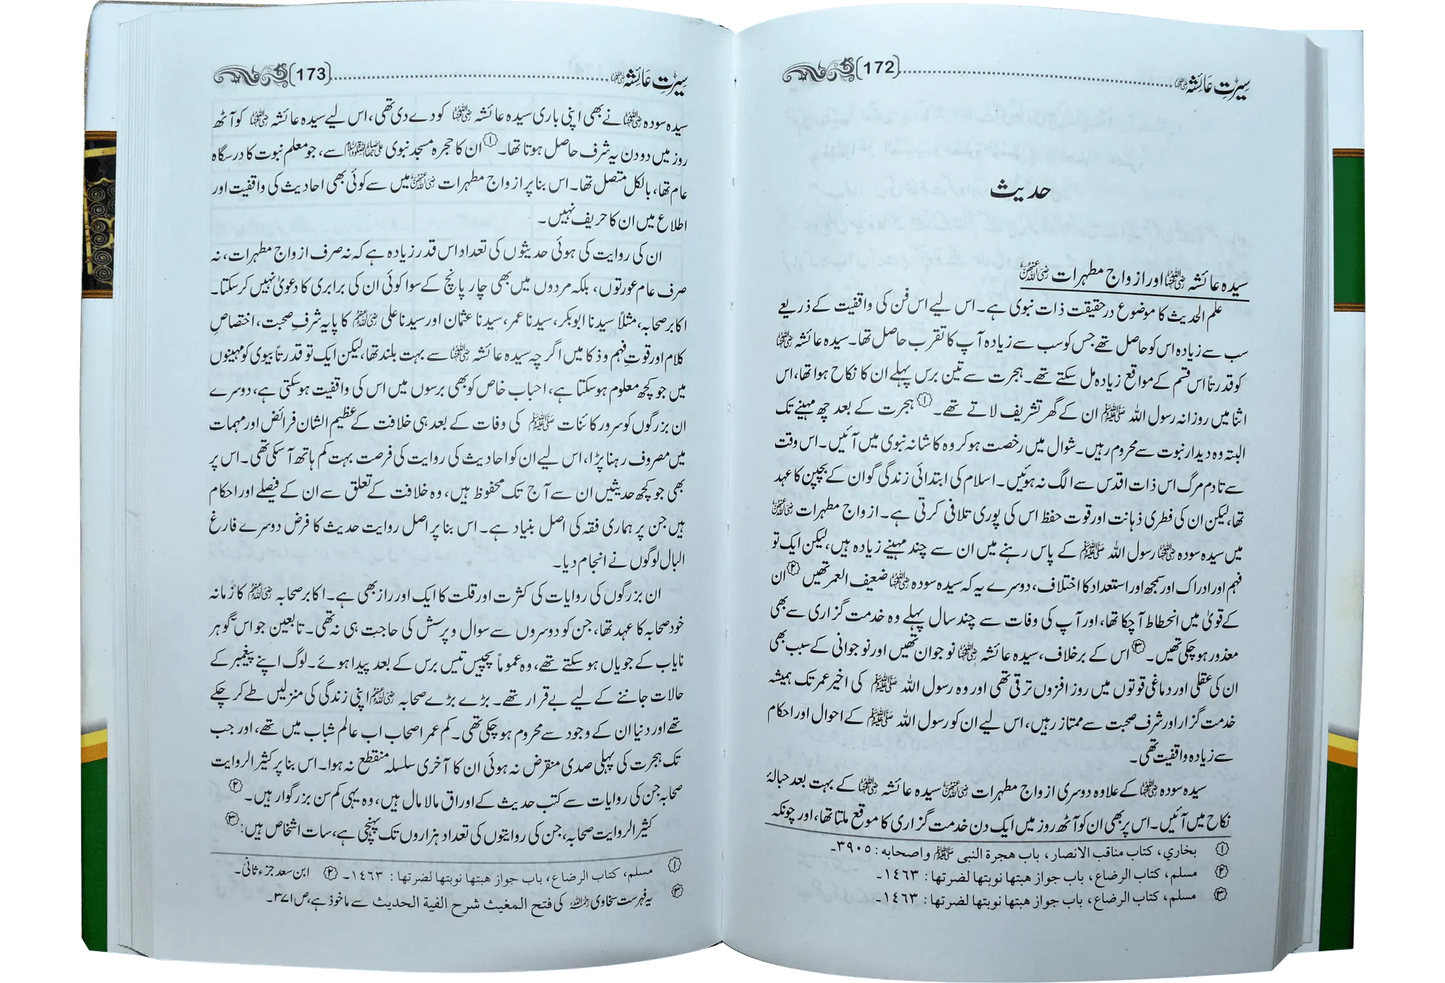 سیرتِ عَائِشہ ؓ (172)
حدیث
سیدہ عائشہ ؓ اور ازواج مطہرات ؓ
علم الحدیث کا موضوع درحقیقت ذات نبوی ہے۔ اس لیے اس فن کی واقفیت کے ذریعے
سب سے زیادہ اس کو حاصل تھے جس کو سب سے زیادہ آپ کا تقرب حاصل تھا۔ سیدہ عائشہ ؓ
کو قدرتاً اس قسم کے مواقع زیادہ مل سکتے تھے۔ ہجرت سے تین برس پہلے ان کا نکاح ہوا تھا، اس
اثنا میں روزانہ رسول اللہ ﷺ ان کے گھر تشریف لاتے تھے۔ ① ہجرت کے بعد چھ مہینے تک
البتہ وہ دیدار نبوت سے محروم رہیں۔ شوال میں رخصت ہو کر وہ کاشانہ نبوی میں آئیں۔ اس وقت
سے تا دم مرگ اس ذات اقدس سے الگ نہ ہوئیں۔ اسلام کی ابتدائی زندگی گو ان کے بچپن کا عہد
تھا، لیکن ان کی فطری ذہانت اور قوت حفظ اس کی پوری تلافی کرتی ہے۔ ازواج مطہرات ؓ
میں سیدہ سودہ ؓ رسول اللہ ﷺ کے پاس رہنے میں ان سے چند مہینے زیادہ ہیں، لیکن ایک تو
فہم اور ادراک اور سمجھ اور استعداد کا اختلاف، دوسرے یہ کہ سیدہ سودہ ؓ ضعیف العمر تھیں ② ان
کے قویٰ میں انحطاط آ چکا تھا، اور آپ کی وفات سے چند سال پہلے وہ خدمت گزاری سے بھی
معذور ہو چکی تھیں۔ ③ اس کے برخلاف، سیدہ عائشہ ؓ نوجوان تھیں اور نوجوانی کے سبب بھی
ان کی عقلی اور دماغی قوتوں میں روز افزوں ترقی تھی اور وہ رسول اللہ ﷺ کی اخیر عمر تک ہمیشہ
خدمت گزار اور شرف صحبت سے ممتاز رہیں، اس لیے ان کو رسول اللہ ﷺ کے احوال اور احکام
سے زیادہ واقفیت تھی۔
سیدہ سودہ ؓ کے علاوہ دوسری ازواج مطہرات ؓ سیدہ عائشہ ؓ کے بہت بعد حبالۂ
نکاح میں آئیں۔ اس پر بھی ان کو آٹھ روز میں ایک دن خدمت گزاری کا موقع ملتا تھا، اور چونکہ
① بخاري، كتاب مناقب الانصار، باب هجرة النبى ﷺ واصحابه: ٣٩٠٥۔
② مسلم، كتاب الرضاع، باب جواز هبتها نوبتها لضرتها: ١٤٦٣۔
③ مسلم، كتاب الرضاع، باب جواز هبتها نوبتها لضرتها: ١٤٦٣۔
سیرتِ عَائِشہ ؓ (173)
سیدہ سودہ ؓ نے بھی اپنی باری سیدہ عائشہ ؓ کو دے دی تھی، اس لیے سیدہ عائشہ ؓ کو آٹھ
روز میں دو دن یہ شرف حاصل ہوتا تھا۔ ① ان کا حجرہ مسجد نبوی ﷺ سے، جو معلم نبوت کا درسگاہ
عام تھا، بالکل متصل تھا۔ اس بنا پر ازواج مطہرات ؓ میں سے کوئی بھی احادیث کی واقفیت اور
اطلاع میں ان کا حریف نہیں۔
ان کی روایت کی ہوئی حدیثوں کی تعداد اس قدر زیادہ ہے کہ نہ صرف ازواج مطہرات، نہ
صرف عام عورتوں، بلکہ مردوں میں بھی چار پانچ کے سوا کوئی ان کی برابری کا دعویٰ نہیں کر سکتا۔
اکابر صحابہ، مثلاً سیدنا ابوبکر، سیدنا عمر، سیدنا عثمان اور سیدنا علی ؓ کا پایہ شرفِ صحبت، اختصاصِ
کلام اور قوتِ فہم و ذکا میں اگرچہ سیدہ عائشہ ؓ سے بہت بلند تھا، لیکن ایک تو قدرتاً بیوی کو مہینوں
میں جو کچھ معلوم ہو سکتا ہے، احباب خاص کو بھی برسوں میں اس کی واقفیت ہو سکتی ہے، دوسرے
ان بزرگوں کو سرور کائنات ﷺ کی وفات کے بعد ہی خلافت کے عظیم الشان فرائض اور مہمات
میں مصروف رہنا پڑا، اس لیے ان کو احادیث کی روایت کی فرصت بہت کم ہاتھ آ سکتی تھی۔ اس پر
بھی جو کچھ حدیثیں ان سے آج تک محفوظ ہیں، وہ خلافت کے تعلق سے ان کے فیصلے اور احکام
ہیں جن پر ہماری فقہ کی اصل بنیاد ہے۔ اس بنا پر اصل روایت حدیث کا فرض دوسرے فارغ
البال لوگوں نے انجام دیا۔
ان بزرگوں کی روایات کی کثرت اور قلت کا ایک اور راز بھی ہے۔ اکابر صحابہ ؓ کا زمانہ
خود صحابہ کا عہد تھا، جن کو دوسروں سے سوال و پرسش کی حاجت ہی نہ تھی۔ تابعین جو اس گوہر
نایاب کے جویاں ہو سکتے تھے، وہ عموماً پچیس تیس برس کے بعد پیدا ہوئے۔ لوگ اپنے پیغمبر کے
حالات جاننے کے لیے بے قرار تھے۔ بڑے بڑے صحابہ ؓ اپنی زندگی کی منزلیں طے کر چکے
تھے اور دنیا ان کے وجود سے محروم ہو چکی تھی۔ کم عمر اصحاب اب عالم شباب میں تھے، اور جب
تک ہجرت کی پہلی صدی منقرض نہ ہوئی ان کا آخری سلسلہ منقطع نہ ہوا۔ اس بنا پر کثیر الروایت
صحابہ جن کی روایات سے کتب حدیث کے اوراق مالا مال ہیں، وہ یہی کم سن بزرگوار ہیں۔ ②
کثیر الروایت صحابہ، جن کی روایتوں کی تعداد ہزاروں تک پہنچی ہے، سات اشخاص ہیں: ③
① مسلم، كتاب الرضاع، باب جواز هبتها نوبتها لضرتها: ١٤٦٣۔ ② ابن سعد جزء ثانی۔
③ یہ فہرست سخاوی ؒ کی فتح المغيث شرح الفية الحديث سے ماخوذ ہے، ص ٣٧١۔